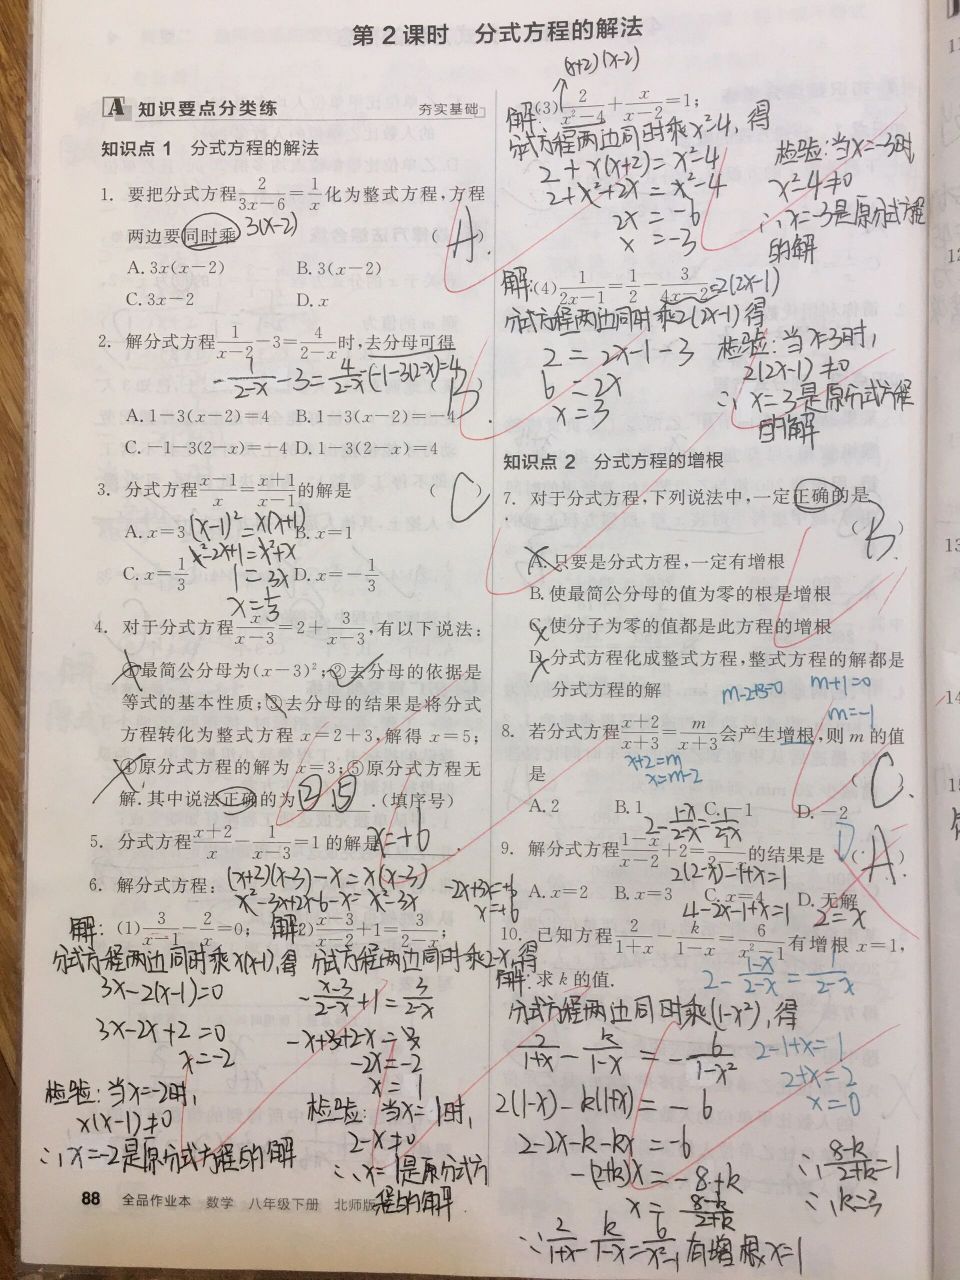 第2课时 分式方程的解法
A 知识要点分类练 夯实基础
知识点 1 分式方程的解法
1. 要把分式方程2/(3x-6)=1/x化为整式方程,方程
两边要同时乘 3(x-2) ( A )
A. 3x(x-2) B. 3(x-2)
C. 3x-2 D. x
2. 解分式方程1/(x-2)-3=4/(2-x)时,去分母可得
-1/(2-x)-3=4/(2-x) -1-3(2-x)=4 B
A. 1-3(x-2)=4 B. 1-3(x-2)=-4
C. -1-3(2-x)=-4 D. 1-3(2-x)=4
3. 分式方程(x-1)/x=(x+1)/(x-1)的解是 ( C )
A. x=3 B. x=1
(x-1)²=x(x+1)
x²-2x+1=x²+x
C. x=1/3 D. x=-1/3
1=3x
x=1/3
4. 对于分式方程x/(x-3)=2+3/(x-3),有以下说法:
①最简公分母为(x-3)²;②去分母的依据是
等式的基本性质;③去分母的结果是将分式
方程转化为整式方程x=2+3,解得x=5;
④原分式方程的解为x=3;⑤原分式方程无
解.其中说法正确的为 ②⑤ .(填序号)
5. 分式方程(x+2)/x-1/(x-3)=1的解是 x=+6 .
6. 解分式方程:
(x+2)(x-3)-x=x(x-3)
x²-3x+2x-6-x=x²-3x
-2x+3x=+6
x=+6
解: (1) 3/(x-1)-2/x=0;
分式方程两边同时乘x(x-1),得
3x-2(x-1)=0
3x-2x+2=0
x=-2
检验:当x=-2时,
x(x-1)≠0
∴x=-2是原分式方程的解
解: (2) (x-3)/(x-2)+1=3/(2-x);
分式方程两边同时乘2-x,得
-(x-3)/(2-x)+1=3/(2-x)
-x+3+2-x=3
-2x=-2
x=1
检验:当x=1时,
2-x≠0
∴x=1是原分式方
程的解
88 全品作业本 数学 八年级下册 北师版
(x+2)(x-2)
解: (3) 2/(x²-4)+x/(x-2)=1;
分式方程两边同时乘x²-4,得
2+x(x+2)=x²-4
2+x²+2x=x²-4
2x=-6
x=-3
检验:当x=-3时
x²-4≠0
∴x=-3是原分式方程
的解
解: (4) 1/(2x-1)=1/2-3/(4x-2) =2(2x-1)
分式方程两边同时乘2(2x-1)得
2=2x-1-3
6=2x
x=3
检验:当x=3时,
2(2x-1)≠0
∴x=3是原分式方程
的解
知识点 2 分式方程的增根
7. 对于分式方程,下列说法中,一定正确的是
( B )
A. 只要是分式方程,一定有增根
B. 使最简公分母的值为零的根是增根
C. 使分子为零的值都是此方程的增根
D. 分式方程化成整式方程,整式方程的解都是
分式方程的解
m-2+3=0 m+1=0
m=-1
8. 若分式方程(x+2)/(x+3)=m/(x+3)会产生增根,则m的值
x+2=m
x=m-2
是 ( C )
A. 2 B. 1 C. -1 D. -2
2-(1-x)/(2-x)=1/(2-x)
9. 解分式方程(1-x)/(x-2)+2=1/(2-x)的结果是 ( A )
2(2-x)-1+x=1
A. x=2 B. x=3 C. x=4 D. 无解
4-2x-1+x=1
2=x
10. 已知方程2/(1+x)-k/(1-x)=6/(x²-1)有增根x=1,
求k的值.
2-(1-x)/(2-x)=1/(2-x)
2-1+x=1
2+x=2
x=0
解:
分式方程两边同时乘(1-x²),得
2/(1+x)-k/(1-x)=-6/(1-x²)
2(1-x)-k(1+x)=-6
2-2x-k-kx=-6
-(2+k)x=-8+k
x=(8-k)/(2+k)
∵2/(1+x)-k/(1-x)=6/(x²-1)有增根x=1
∴(8-k)/(2+k)=1
∴k=3